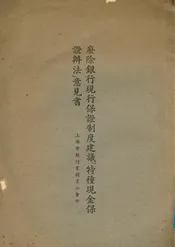 廢除銀行現行保證制度建議特種現金保
證辦法意見書
上海市銀行業同業公會印